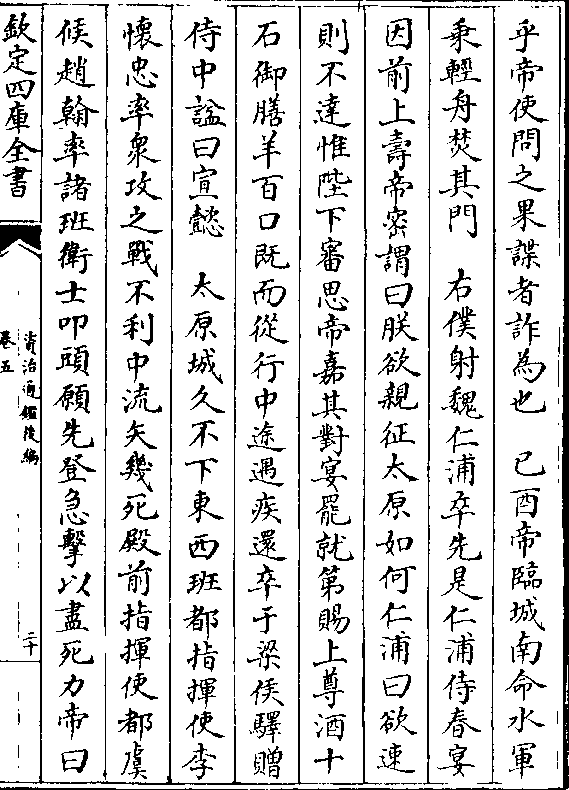 乎帝使問之果諜者詐為也　已酉帝臨城南命水軍
乘輕舟焚其門　右僕射魏仁浦卒先是仁浦侍春宴
因前上壽帝密謂曰朕欲親征太原如何仁浦曰欲速
則不達惟陛下審思帝嘉其對宴罷就第賜上尊酒十
石御膳羊百口既而從行中途遇疾還卒于梁侯驛贈
侍中諡曰宣懿　太原城久不下東西班都指揮使李
懷忠率衆攻之戰不利中流矢幾死殿前指揮使都虞
候趙翰率諸班衛士叩頭願先登急擊以盡死力帝曰
欽定四庫全書
資治通鑑後編
卷五
二十